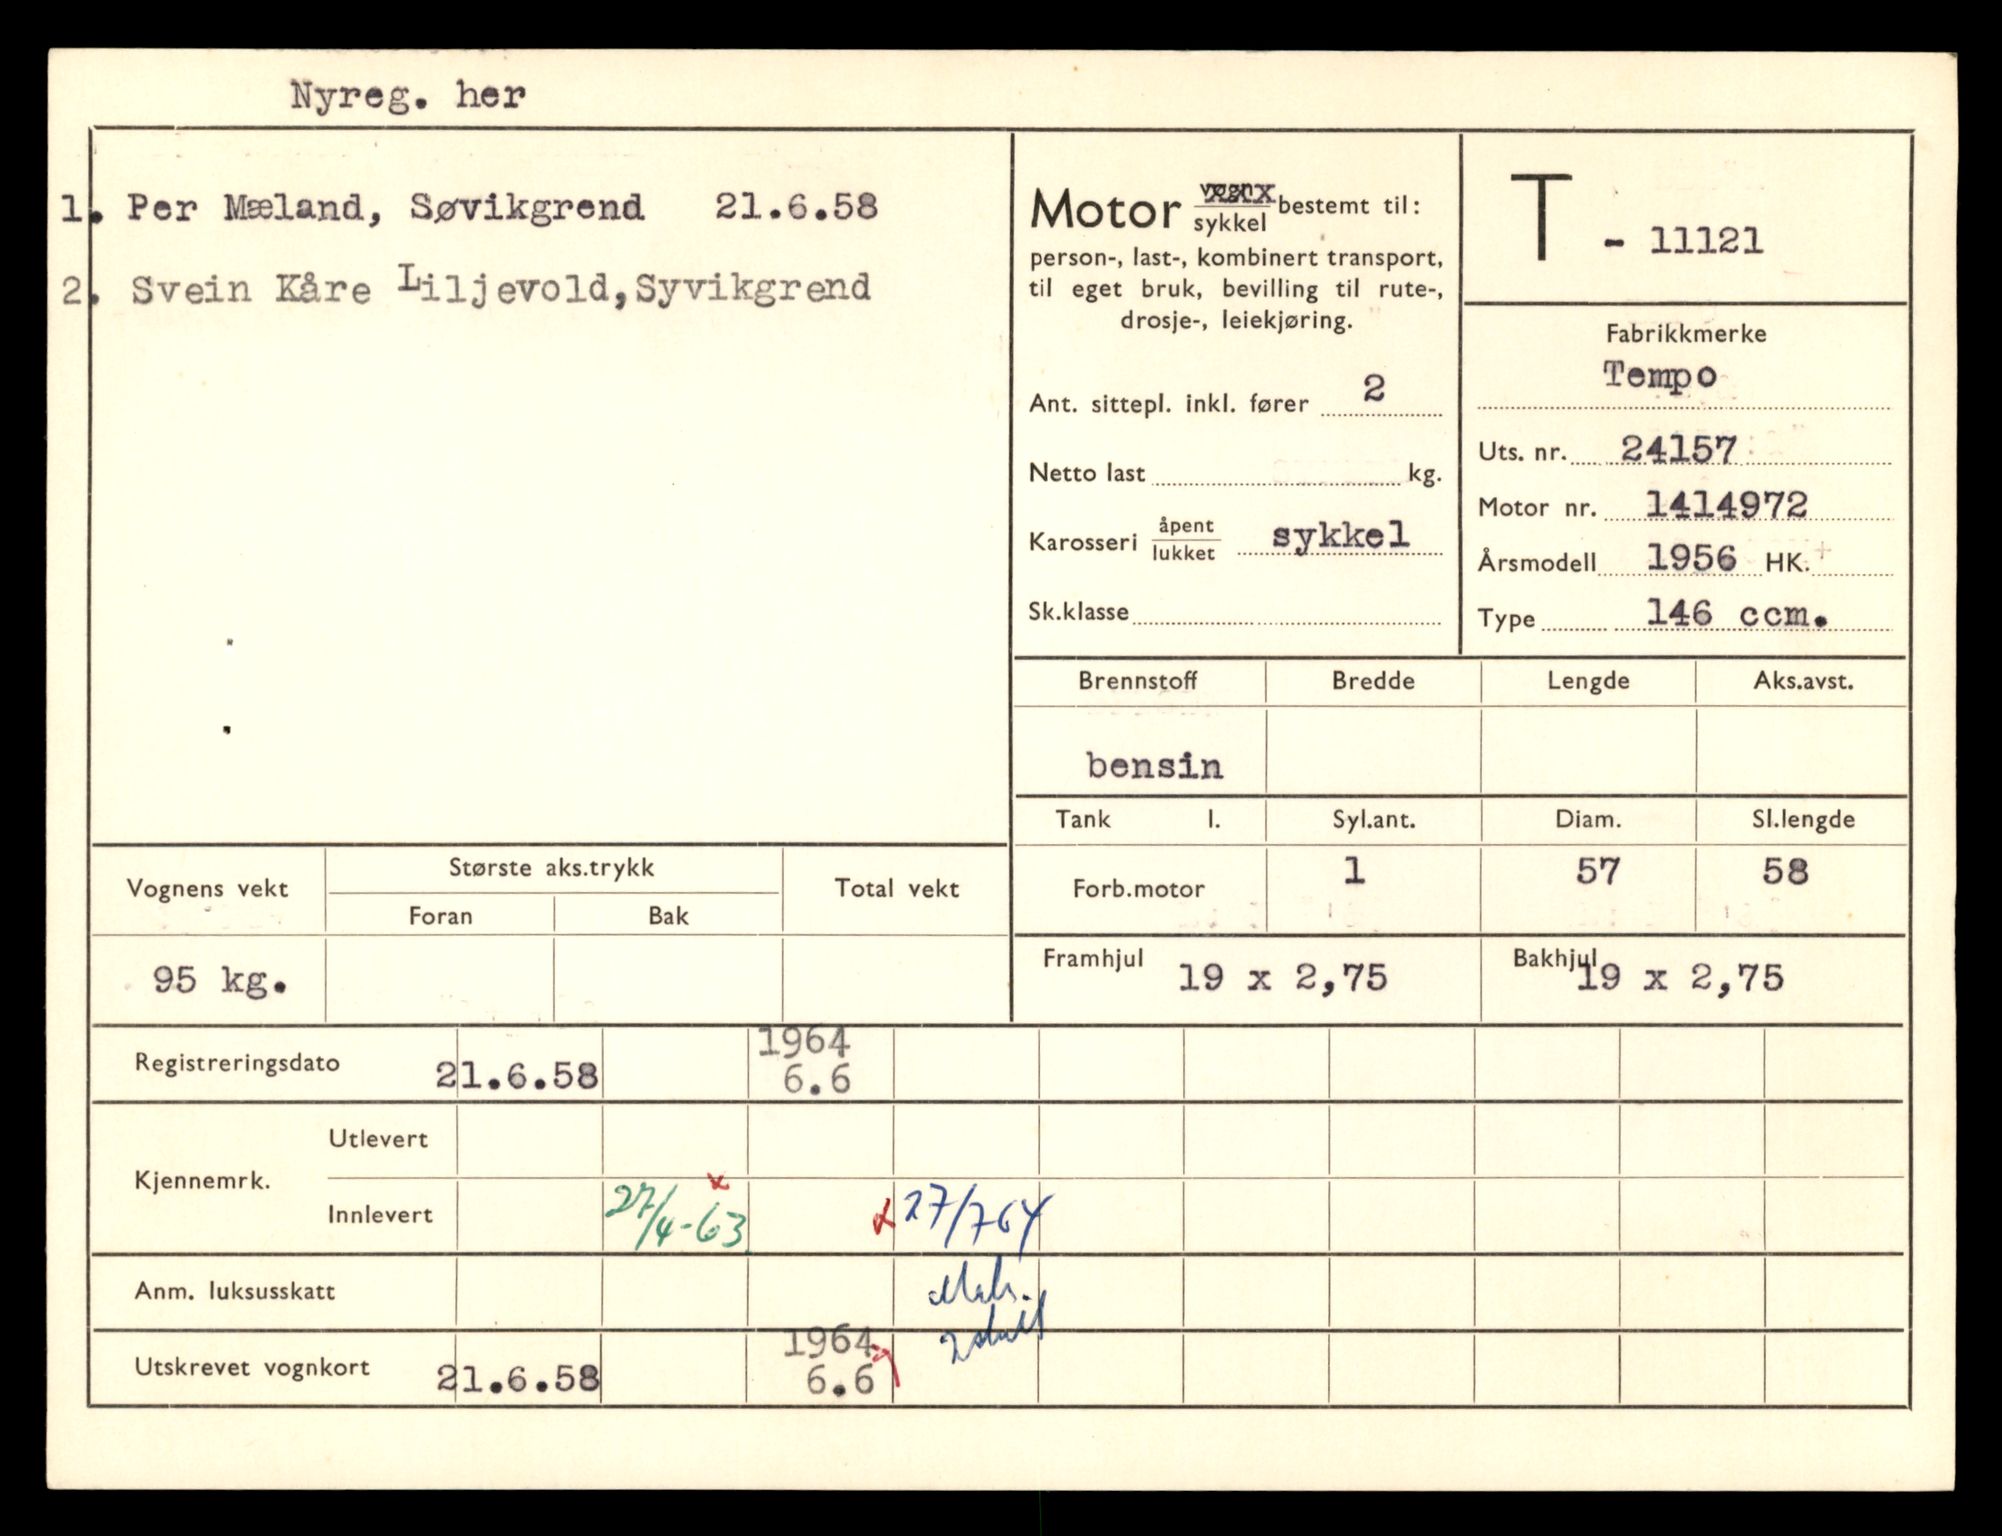 Nyreg. her
1. Per Mæland, Søvikgrend 21.6.58
2. Svein Kåre Liljevold,Syvikgrend
Motor vogn
sykkel bestemt til:
person-, last-, kombinert transport,
til eget bruk, bevilling til rute-,
drosje-, leiekjøring.
Ant. sittepl. inkl. fører 2
Netto last kg.
Karosseri åpent
lukket sykkel
Sk.klasse
T - 11121
Fabrikkmerke
Tempo
Uts. nr. 24157
Motor nr. 1414972
Årsmodell 1956 HK.
Type 146 ccm.
Brennstoff Bredde Lengde Aks.avst.
bensin
Tank l. Syl.ant. Diam. Sl.lengde
Forb.motor 1 57 58
Framhjul 19 x 2,75 Bakhjul 19 x 2,75
Vognens vekt Største aks.trykk Total vekt
Foran Bak
95 kg.
Registreringsdato 21.6.58 1964
6.6
Kjennemrk. Utlevert
Innlevert 27/4-63 x x 27/7 64
Anm. luksusskatt
Utskrevet vognkort 21.6.58 1964
6.6